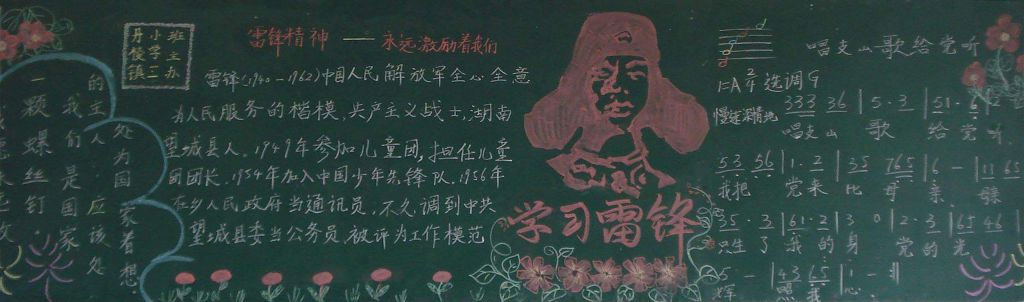 丹棱镇
小学三
班主办
一颗螺丝钉
我们是国家
的主人，应该处
处为国家着想．
雷锋精神——永远激励着我们
雷锋(1940—1962)中国人民解放军全心全意
为人民服务的楷模，共产主义战士，湖南
望城县人。1949年参加儿童团，担任儿童
团团长。1954年加入中国少年先锋队。1956年
在乡人民政府当通讯员，不久，调到中共
望城县委当公务员，被评为工作模范
学习雷锋
唱支山歌给党听
1=A 2/4 选调G
慢速 深情地
333 36 | 5·3 | 51·6 | 2
唱支山 歌 给党听
53 56 | 1·2 | 35 765 | 6 - | 11 65
我把 党来比母亲
35·3 | 61·2 | 3 0 | 2·3 | 65 46 |
只生了我的身 党的光
5 - | 43 65 | 1 - :||
辉 照我心．